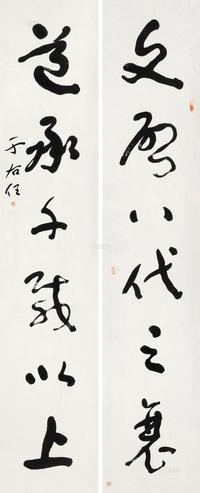 文八代之衰
道承千載以上
于右任